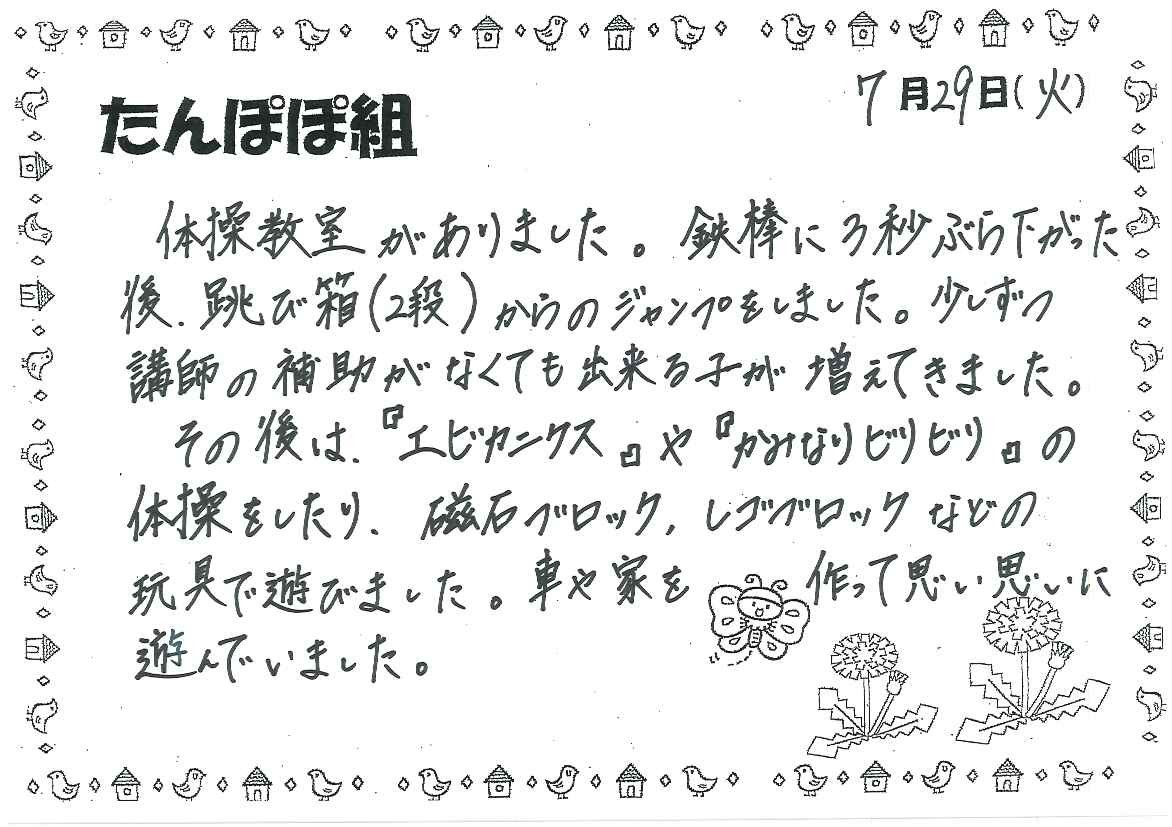 7月29日(火)
たんぽぽ組
体操教室がありました。鉄棒に3秒ぶら下がった
後、跳び箱(2段)からのジャンプをしました。少しずつ
講師の補助がなくても出来る子が増えてきました。
その後は、『エビカニクス』や『かみなりビリビリ』の
体操をしたり、磁石ブロック、レゴブロックなどの
玩具で遊びました。車や家を作って思い思いに
遊んでいました。